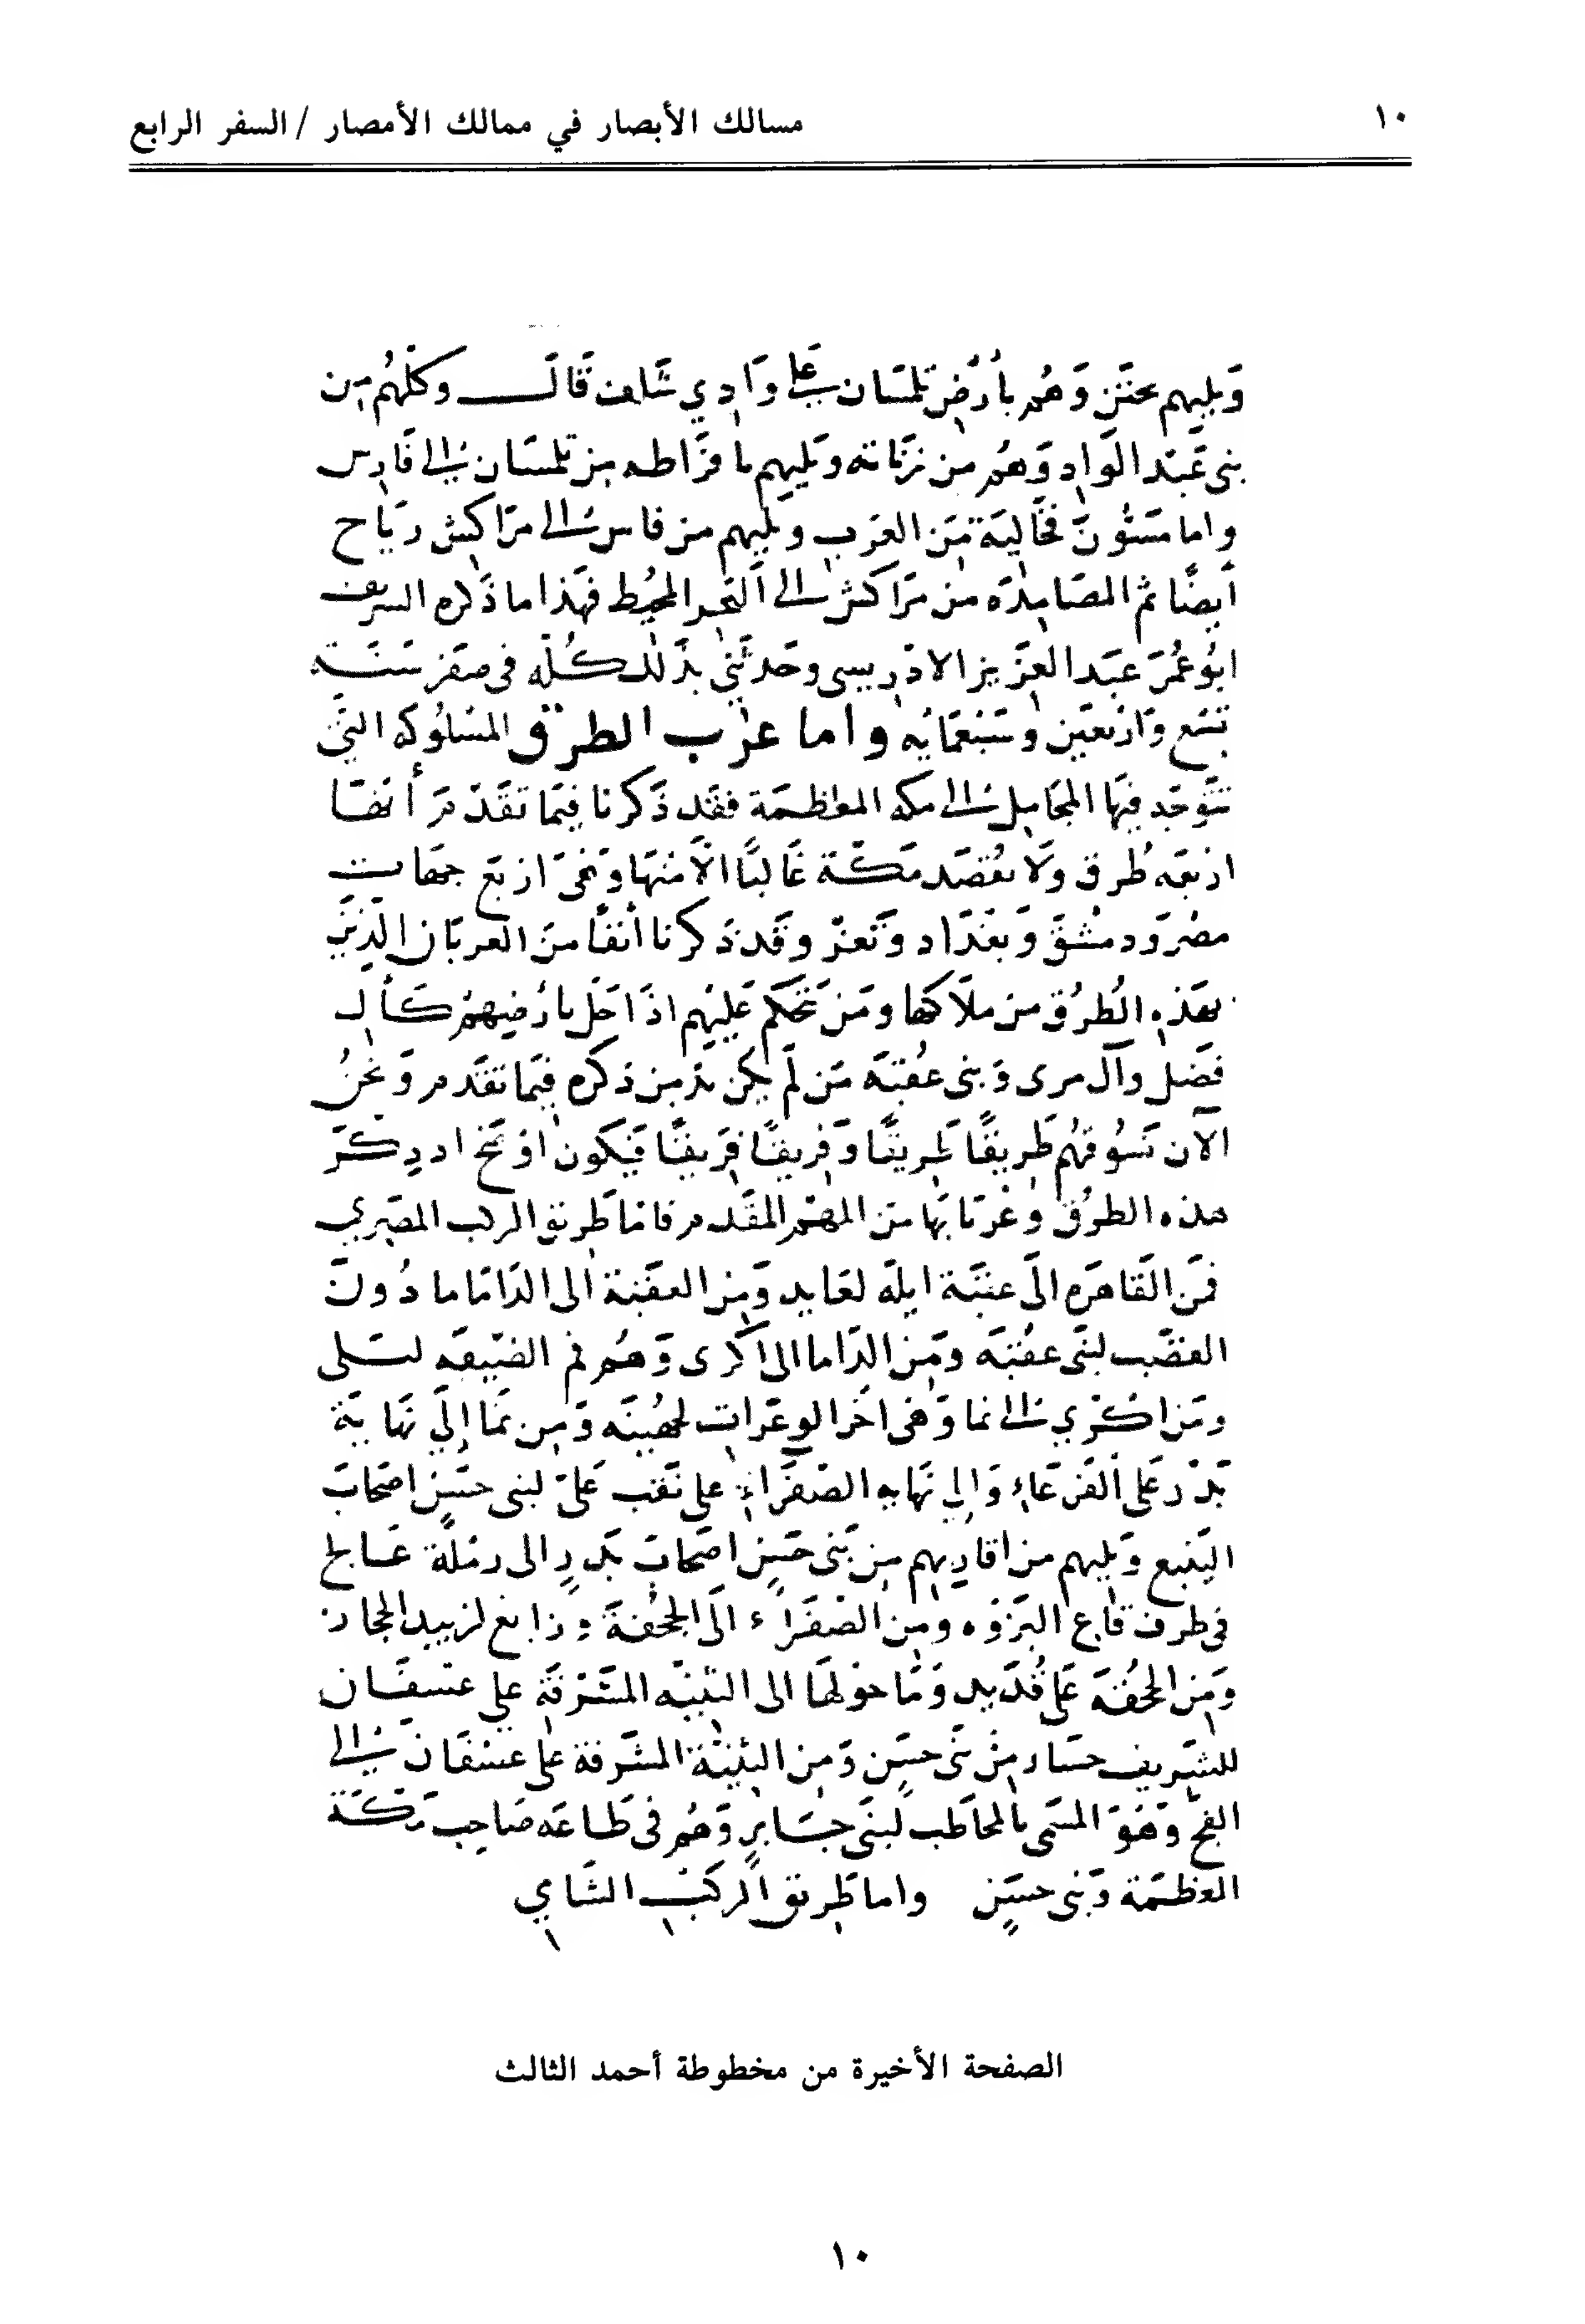 ١٠
مسالك الأبصار في ممالك الأمصار / السفر الرابع
وَيليهم وَهُم بأرض تلمسَان على وَادي شلف قَالَ وكلهُم مِن
بنى عَبْد الوَادِ وَهُم من زَنَاته وَيَليهم من تلمسَان إلى فَاس
واما من العَرَب وَيَليهم من فاس إلى مَرَاكِش ريَاح
أيضًا ثم المصَامدَه من مَرَاكش إلى البَحر المحيُط فهَذا ما ذَكره الشريف
ابُو عُمَرَ عبَد العزَيز الادْريسى وحَدثَنى بذَلك كُلّه فى صَفر سَنَة
تسَع وَارْبعَين وسَبْعمَايُه واما عرَب الطرْق المسْلوُكه التى
تتوَجّه فيهَا المحَامِل إلى مكه المعَظمَة فقَد ذَكرنا فِيمَا تقَدّمَ أنفًا
اربعَه طُرق وَلَا يقُصَد مَكَّة غَالبًا الّا منْهَا وَهْىَ اربَع جهَات
مصْر وَدمشْق وَبَغْدَاد وَتَعز وقَد ذَكرنا أنفًا منَ العرَبان الذينَ
بهَذِه الطُرُق من ملَاكهَا ومَن تحَكم عَليْهم اذَا حَل بارْضِيهم كَآل
فَضل وآل مرى وَبنى عقُبَه مَن لَم يكن بدّ مِن ذكرهِ فيمَا تقَدم وَنحْنُ
الآن نَسُوقهُم طَرِيقًا طَرِيقًا وَفَرِيقًا فَرِيقًا فَيكَون اوْضَح اذ ذِكْر
هذه الطرُق وعُرْبَانهَا مَن المهَم المقَدم فامّا طَريق الركب المصْرِي
فمَن القَاهَره الىَ عقبَة ايلَه لعَايد وَمِن العقَبَة الى الدَامَا مادُونَ
العقَب لبنَى عقُبَه ومَن الدَاما الى اكْرى وَهُم فم الضَيقَه لبَلى
ومَن اكْرَي إلى نما وَهَى آخَر الوعَرَات لجهُينَه وَمِن نمَا إِلَي نَهَايَة
بَدْر عَلى الفَرعَاءِ وَإِلي نهَايه الصَفرَاءِ على نقَب عَلىّ لبنى حسَن اصحَابَ
اليَنبع وَيَليهم من اقاربهم مِن بَنى حَسَن اصحَابَ بَدرٍ الى رمْلَة عَالج
فى طرف قاع البَزْوَه ومِن الصَفَرَاء الَى الجحُفَة وَرابغ لزبيد الحجاز
وَمِن الجحُفَه عَلى قُدَيد وَمَا حَوْلهَا الى الثنيَّه المشَرفَة على عسفَان
للشرَيف من بنَى حسَن وَمِن الثنيَة المشَرفة على عسْفَانَ إلى
الفجّ وَهُوَ المسَمى بالمحَاطب لبنَى جَابرٍ وَهُم فى طَاعَه صَاحِب مَكَّة
المعَظمَة وَبَنى حسَنٍ واما طَريق الرَكبْ الشَامِي
الصفحة الأخيرة من مخطوطة أحمد الثالث
١٠